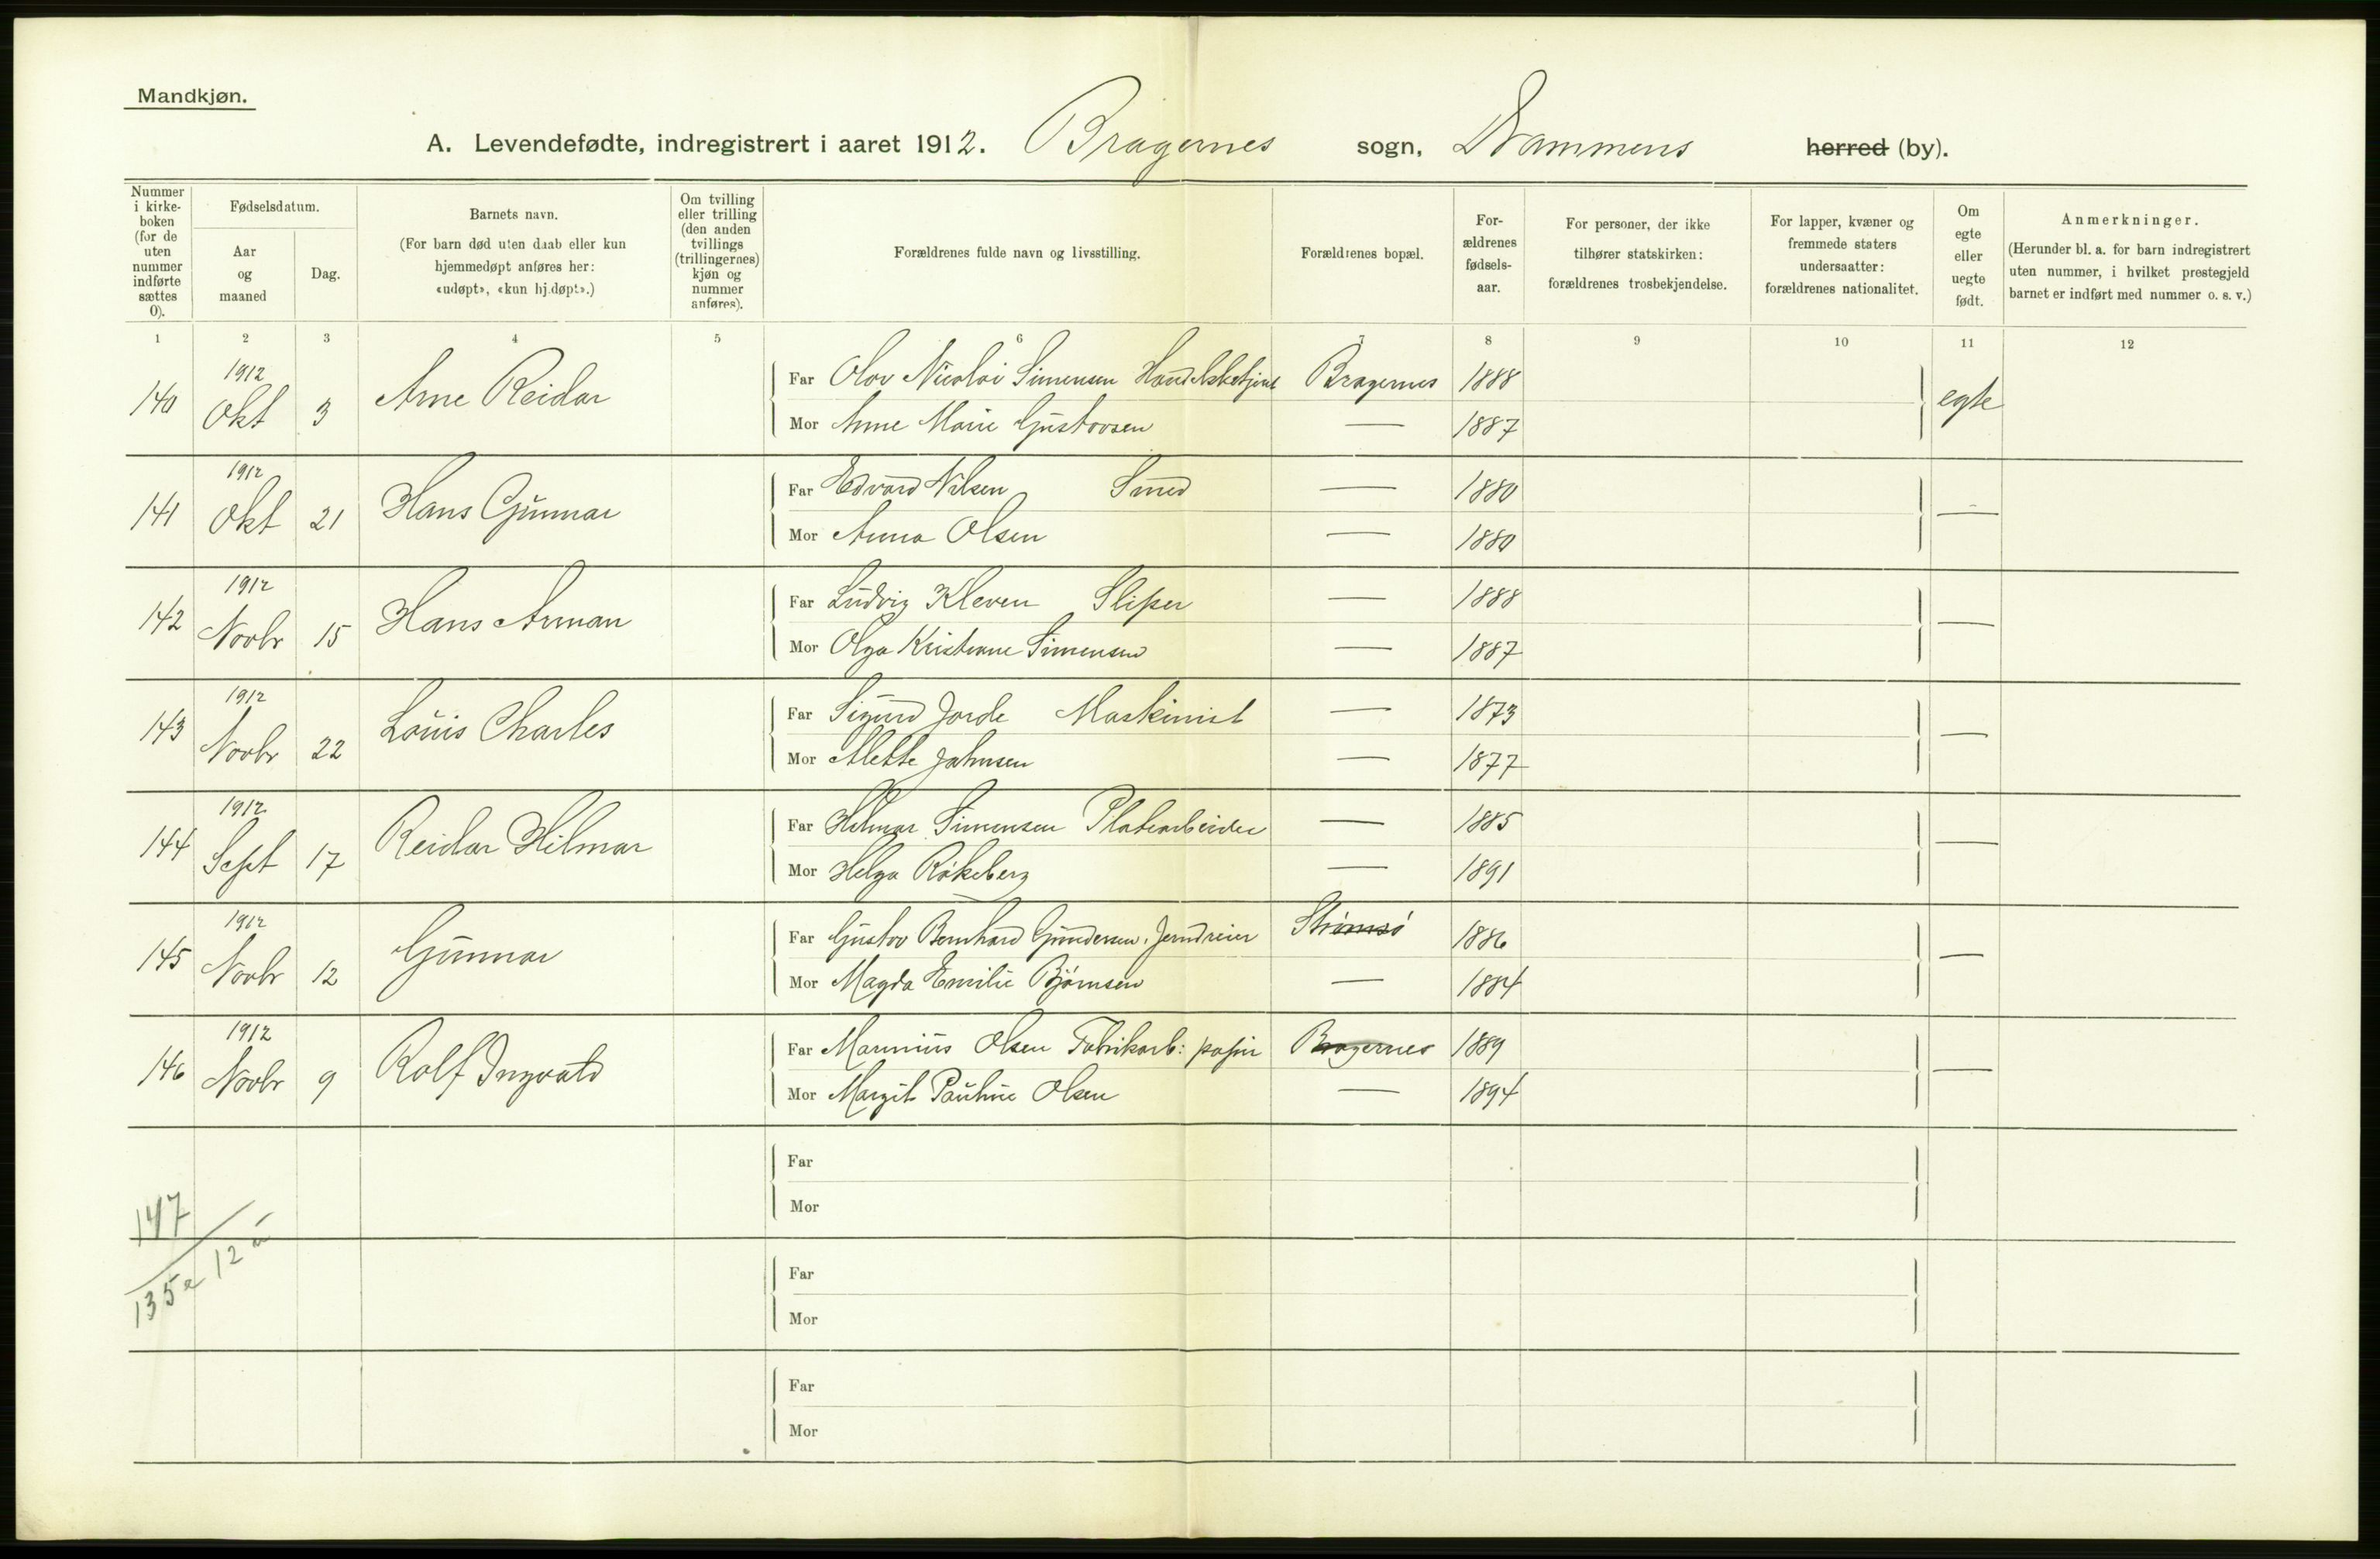 Mandkjøn.
A. Levendefødte, indregistrert i aaret 1912. Bragernes sogn, Drammens herred (by).
Nummer i kirkeboken (for de uten nummer indførte sættes 0).
Fødselsdatum.
Aar og maaned
Dag.
Barnets navn.
(For barn død uten daab eller kun hjemmedøpt anføres her: «udøpt», «kun hj.døpt».)
Om tvilling eller trilling (den anden tvillings (trillingernes) kjøn og nummer anføres).
Forældrenes fulde navn og livsstilling.
Forældrenes bopæl.
Forældrenes fødselsaar.
For personer, der ikke tilhører statskirken: forældrenes trosbekjendelse.
For lapper, kvæner og fremmede staters undersaatter: forældrenes nationalitet.
Om egte eller uegte født.
Anmerkninger.
(Herunder bl. a. for barn indregistrert uten nummer, i hvilket prestegjeld barnet er indført med nummer o. s. v.)
1 2 3 4 5 6 7 8 9 10 11 12
140 1912 Okt 3 Arne Reidar Far Olov Nicolai Simensen Bragernes 1888 egte
Mor Anne Marie Gustavsen — 1887
141 1912 Okt 21 Hans Gunnar Far Edvard Nilsen Smed — 1880 —
Mor Anna Olsen — 1880
142 1912 Novbr 15 Hans Arman Far Ludvig Kleven Sliper — 1888 —
Mor Olga Kristine Simensen — 1887
143 1912 Novbr 22 Louis Charles Far Sigurd Jorde Maskinist — 1873 —
Mor Alette Johnsen — 1877
144 1912 Sept 17 Reidar Hilmar Far Hilmar Simensen Platearbeider — 1885 —
Mor Helga Råkeberg — 1891
145 1912 Novbr 12 Gunnar Far Gustav Bernhard Gundersen. Jerndreier Strømsø 1886 —
Mor Magda Emilie Bjørnsen — 1884
146 1912 Novbr 9 Rolf Ingvald Far Marinius Olsen Fabrikarb: papir Bragernes 1889 —
Mor Margit Pauline Olsen — 1894
Far
Mor
147
135 e 12 u
Far
Mor
Far
Mor